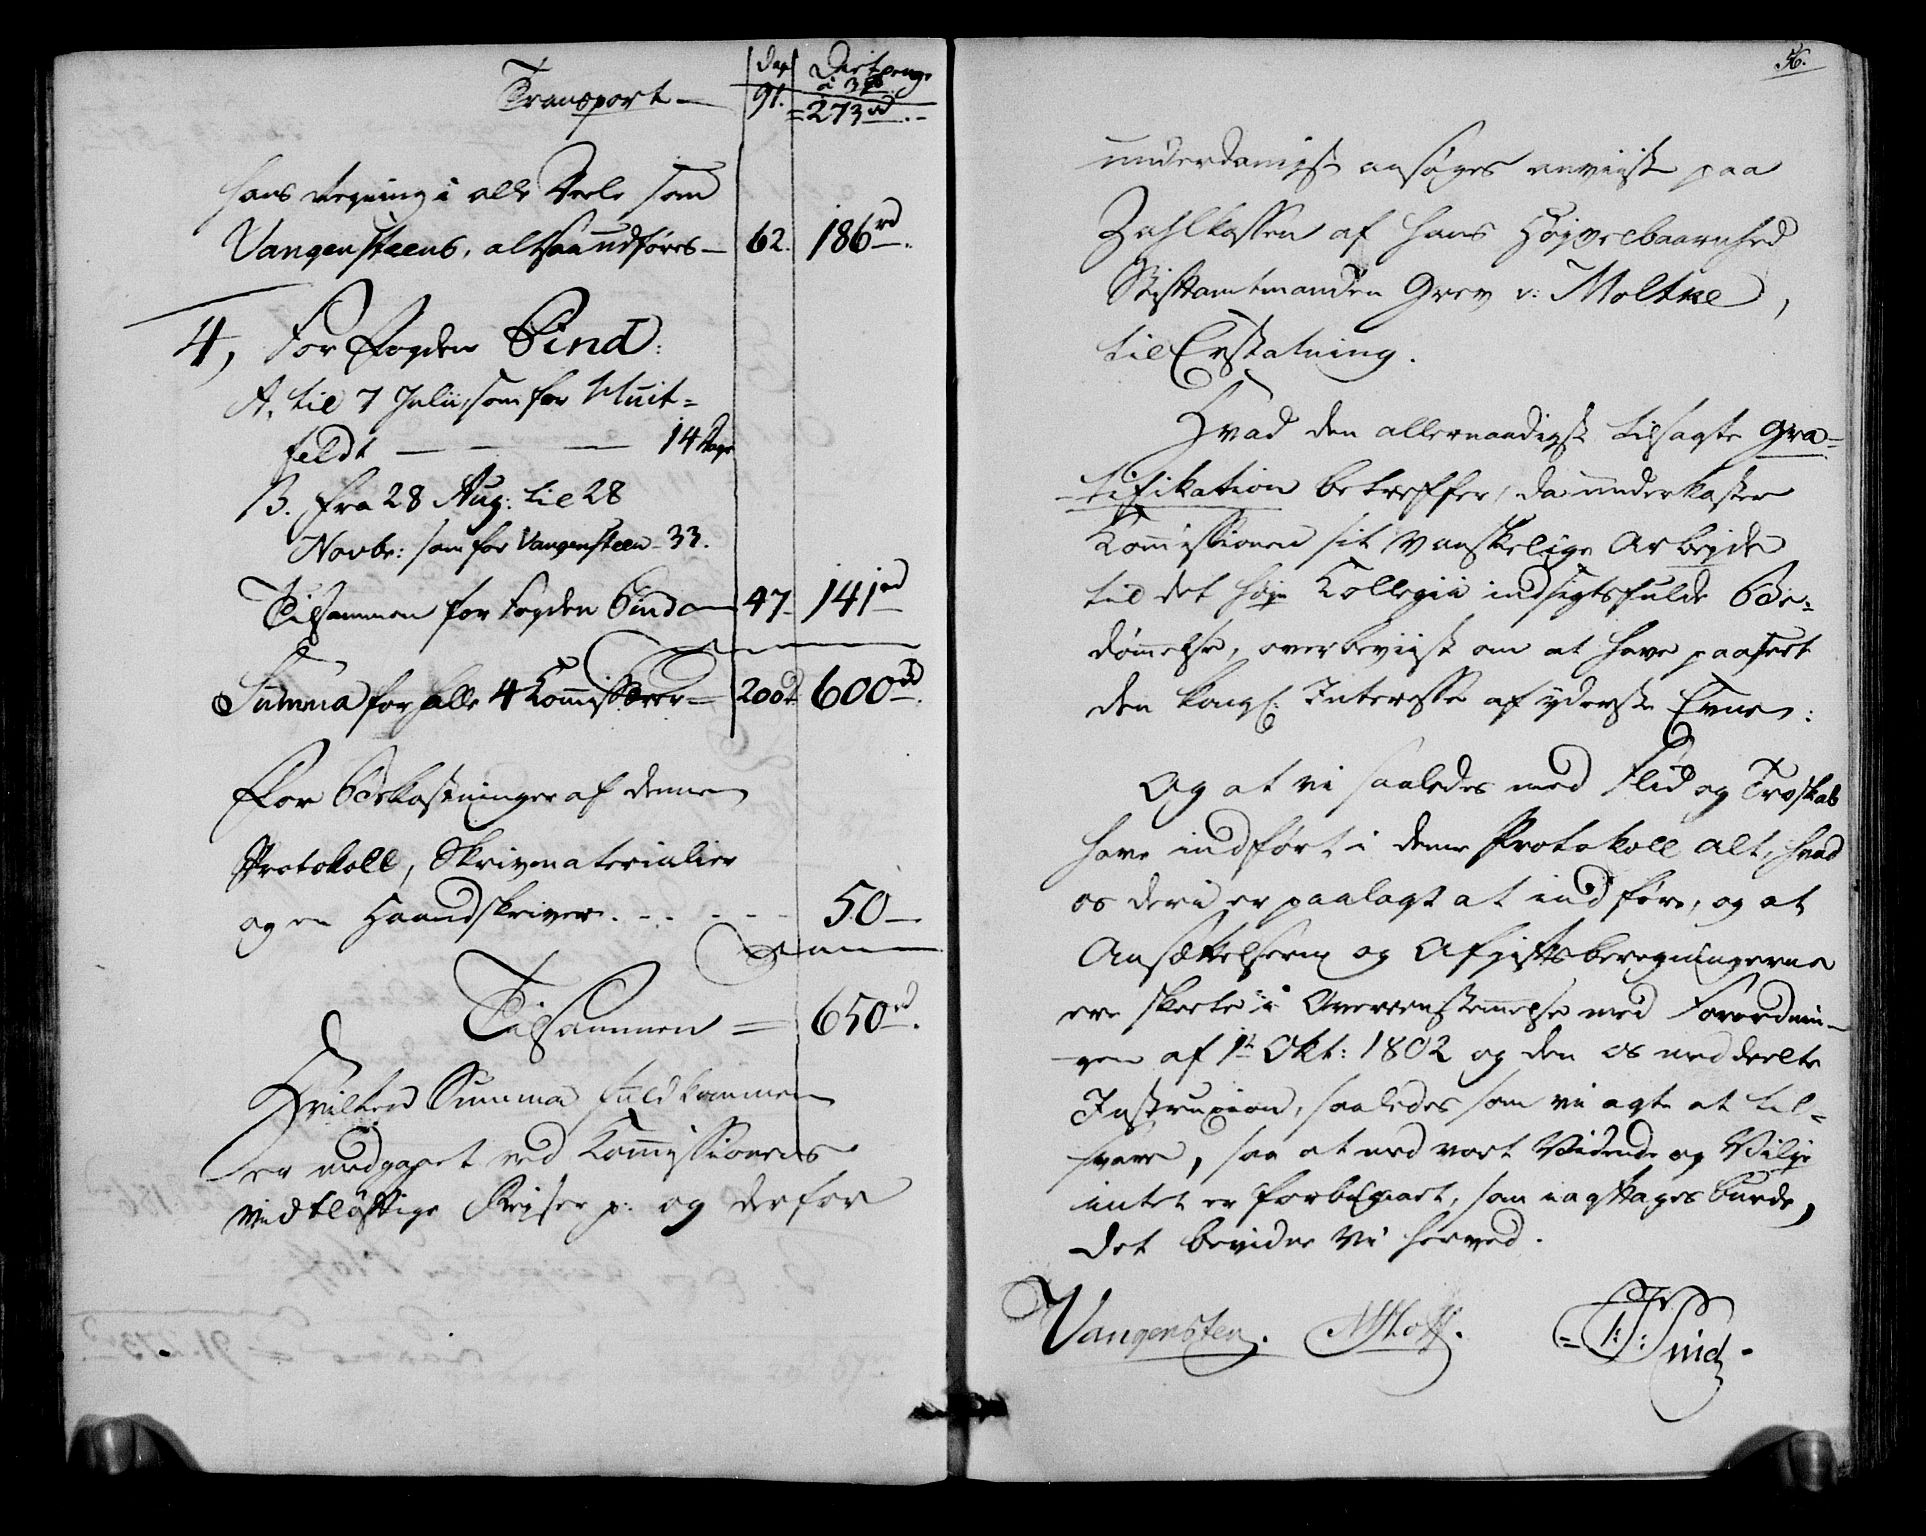 Dag Diætpenge
à 3 rd
Transport — 91. = 273 rd. -
hans Regning i alle Deele som
Vangensteens, altsaa udføres — 62. 186 rd.
4, For Fogden Sind:
A. til 7 Julii, som for Huit=
feldt — — — 14 Dage
B. Fra 28 Aug: til 28
Novbr: som for Vangensteen - 33.
Tilsammen for Fogden Sind — 47 - 141 rd
Summa for alle 4 Kommissærer = 200 d 600 rd.
For Bekostninger af denne
Protokoll, Skrivematerialier
og en Haandskriver. - - - - 50 —
Tilsammen = 650 rd.
Hvilken Summa fuldkommen
er medgaaet ved Kommissionens
vidtløftige Rejser p: og derfor
56.
underdanigst ansøges anviist paa
Zahlkassen af Hans Højvelbaarnhed
Stiftamtmanden Grev v: Moltke,
til Erstatning.
Hvad den allernaadigst tilsagte Gra-
tifikation betreffer, da underkaster
Kommissionen sit vanskelige Arbejde
til det høje Kollegii indsigtsfulde Be=
dømmelse, overbeviist om at have paaseet
den kongl: Interesse af yderste Evne:
Og at vi saaledes med Flid og Troskab
have indført i denne Protokoll alt, hvad
os deri er paalagt at indføre, og at
Ansættelserne og Afgiftsberegningerne
ere skeete i Overeenstemmelse med Forordnin-
gen af 1te Okt: 1802 og den os meddeelte
Instruxion, saaledes som vi agte at til-
svare, saa at med vort Vidende og Vilje
intet er forbigaaet, som iagttages burde,
det bevidne vi herved.
Vangensten. NHoff. Sind.